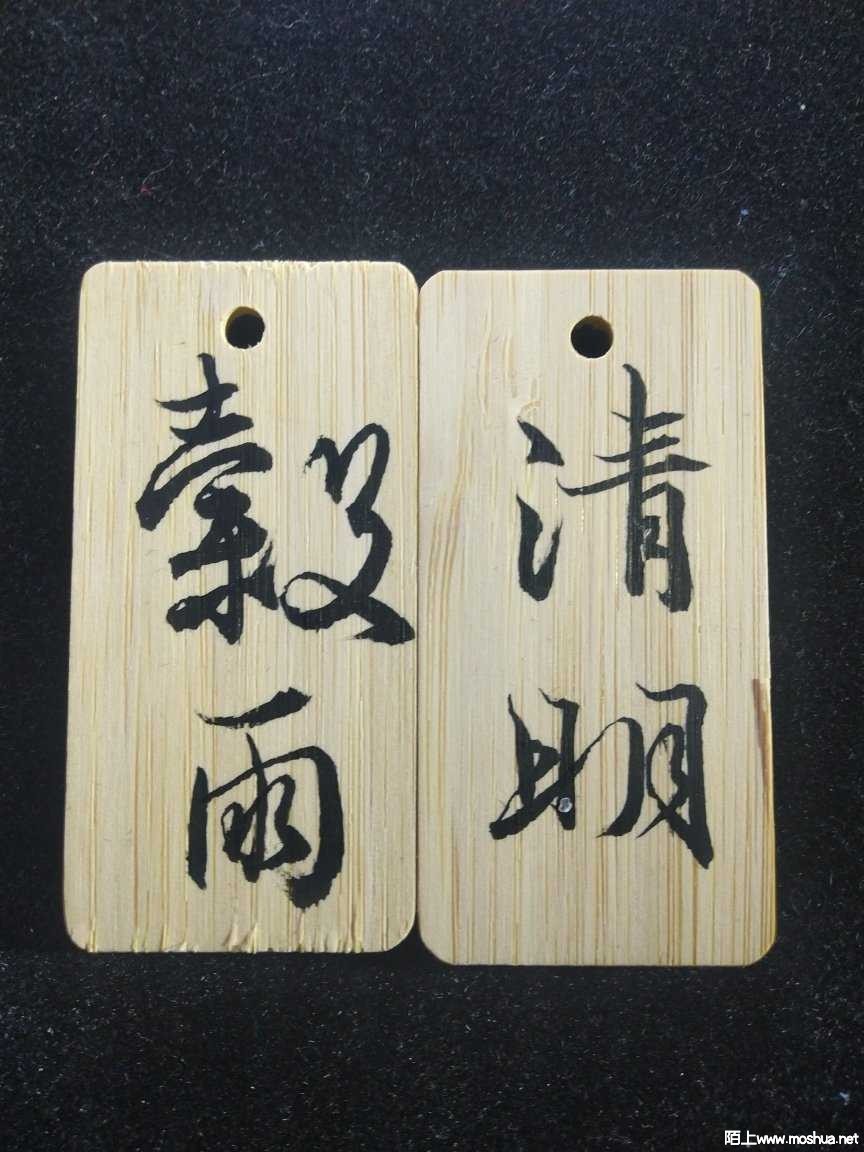 清明
穀雨
陌上www.moshua.net